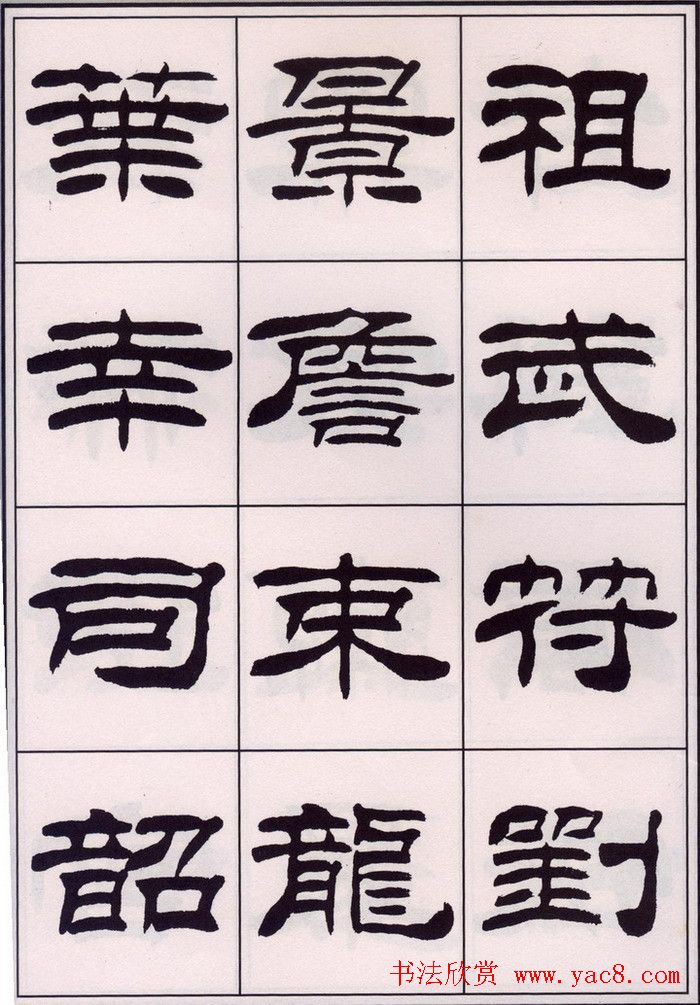 祖武符劉
景詹束龍
葉幸司韶
书法欣赏 www.yac8.com